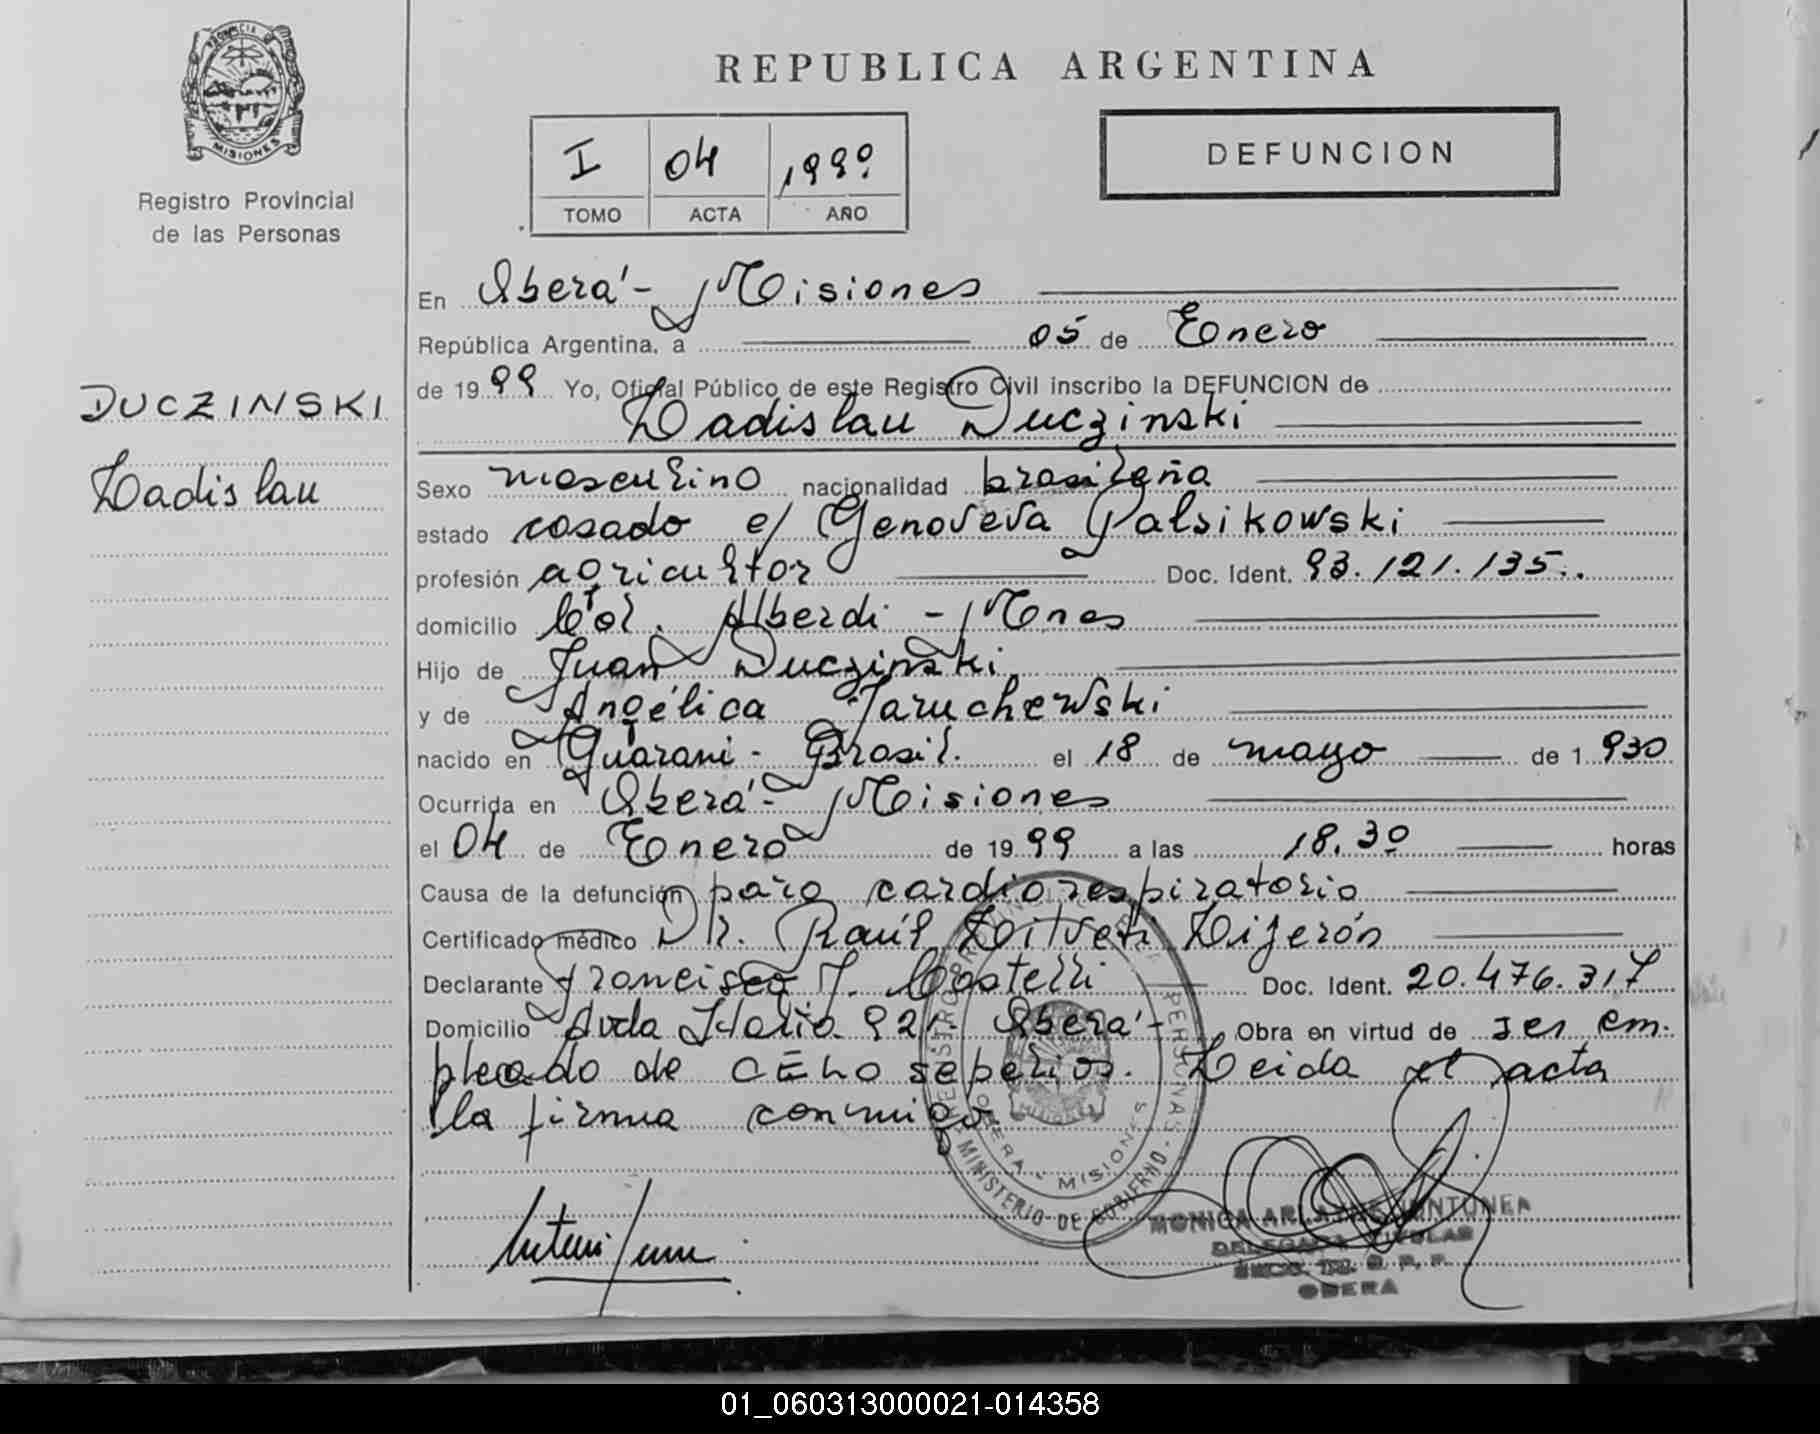 PROVINCIA DE
MISIONES
Registro Provincial
de las Personas
DUCZINSKI
Ladislau
REPUBLICA ARGENTINA
I 04 1999
TOMO ACTA AÑO
DEFUNCION
En Oberá - Misiones
República Argentina, a 05 de Enero
de 1999 Yo, Oficial Público de este Registro Civil inscribo la DEFUNCION de
Ladislau Duczinski
Sexo masculino nacionalidad brasileña
estado casado c/ Genoveva Palsikowski
profesión agricultor Doc. Ident. 93.121.135.
domicilio Col. Alberdi - Mnes
Hijo de Juan Duczinski
y de Angélica Jaruchewski
nacido en Guarani - Brasil. el 18 de mayo de 1.930
Ocurrida en Oberá - Misiones
el 04 de Enero de 1999 a las 18.30 horas
Causa de la defunción paro cardiorespiratorio
Certificado médico Dr. Raúl Litveti Lijerón
Declarante Francisco J. Castelli Doc. Ident. 20.476.317
Domicilio Avda Italia 92 - Oberá - Obra en virtud de ser em-
pleado de CELO sepelios. Leida el acta
la firma conmigo
REGISTRO PROVINCIAL DE LAS PERSONAS
MINISTERIO DE GOBIERNO
OBERA - MISIONES
MISIONES
MONICA
DELEGADA TITULAR
OBERA
01_060313000021-014358